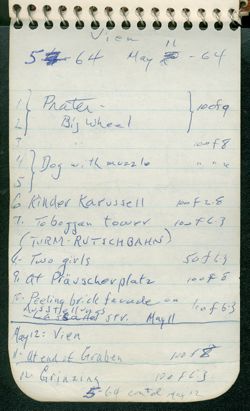 Vien
5 - 64 May 11 - 64
1 } Prater -
2 } Big Wheel } 100 f 9
3 " 100 f 8
4 } Dog with muzzle " " "
5 }
6 Kinder Karussell 100 f 2.8
7. Toboggan tower 100 f 6.3
(TURM-RUTSCHBAHN)
8. Two girls 50 f 6.3
9. At Präuscherplatz 100 f 8
10. Peeling brick facade on 100 f 6.3
Ausstellungs
str. May 11
May 12: Vien
11. At end of Graben 100 f 8
12. Grinzing 100 f 6.3
5 64 contd May 12